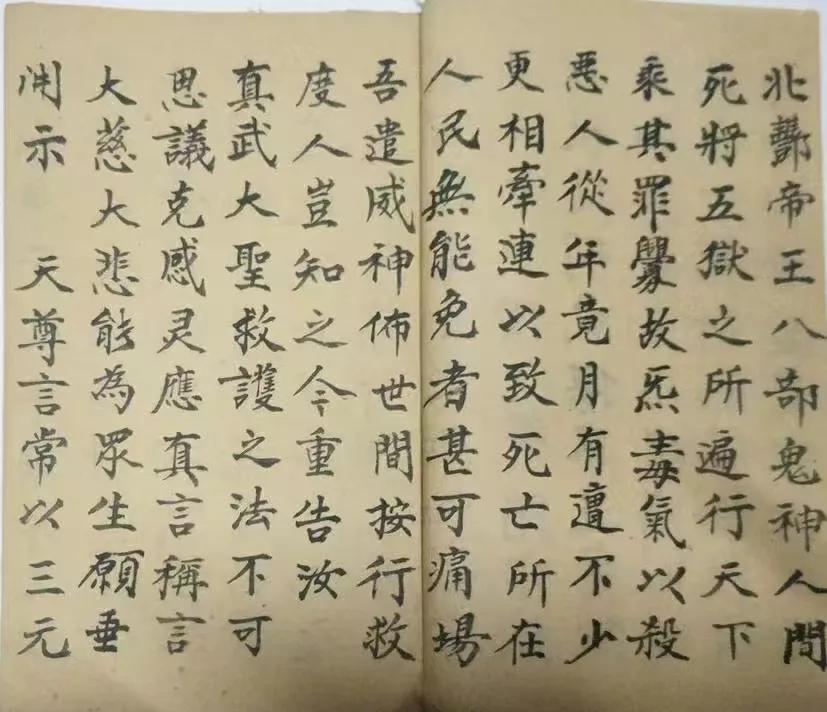 北酆帝王八部鬼神人間
死將五獄之所遍行天下
乘其罪釁故炁毒氣以殺
惡人從年竟月有亶不少
更相牽連以致死亡所在
人民無能免者甚可痛場
吾遣威神佈世間按行救
度人豈知之今重告汝
真武大聖救護之法不可
思議克感灵應真言稱言
大慈大悲能為眾生願垂
開示 天尊言常以三元